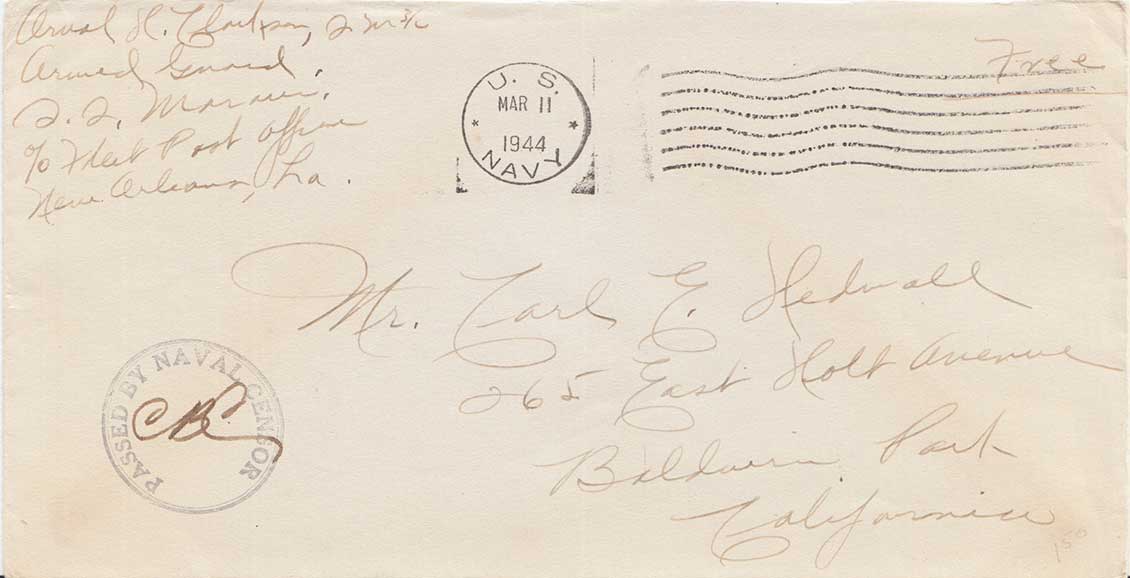 Orval H. 2 M 3/c
Armed Guard,
S.S.
c/o Fleet Post Office
New Orleans, La.
U. S.
MAR 11
1944
NAVY
Free
Mr. Carl E. Hedwall
265 East Holt Avenue
Baldwin Park
California
PASSED BY NAVAL CENSOR
150